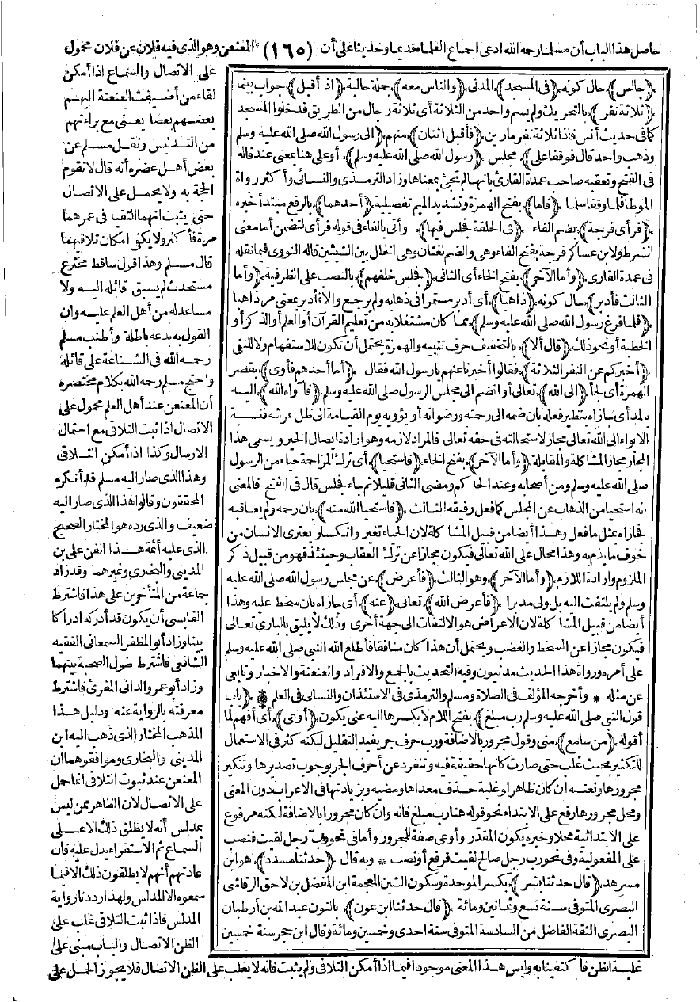 حاصل هذا الباب أن مسلما رحمه الله ادعى اجماع العلماء قديما وحديثا على أن (١٦٥) المعنعن وهو الذي فيه فلان عن فلان محمول
(جالس)، حال كونه (في المسجد) المدني (والناس معه) جملة حالية (اذ أقبل) جواب بينما
(ثلاثة نفر) بالتحريك ولم يسم واحد من الثلاثة أي ثلاثة رجال من الطريق فدخلوا المسجد
كما في حديث أنس فاذا ثلاثة نفر مارين (فأقبل اثنان) منهم (الى رسول الله صلى الله عليه وسلم
وذهب واحد قال فوقفا على) مجلس (رسول الله صلى الله عليه وسلم) أو على هنا بمعنى عند قاله
في الفتح وتعقبه صاحب عمدة القارئ بأنها لم تجئ بمعناها وزاد الترمذي والنسائي وأكثر رواة
الموطا فلما وقفا سلما (فأما) بفتح الهمزة وتشديد الميم تفصيلية (أحدهما) بالرفع مبتدأ خبره
(فرأى فرجة) بضم الفاء (في الحلقة فجلس فيها) وأتى بالفاء في قوله فرأى لتضمن أما معنى
الشرط ولابن عساكر فرجة بفتح الفاء وهي والضم لغتان وهي الخلل بين الشيئين قاله النووي فيما نقله
في عمدة القاري (وأما الآخر) بفتح الخاء أي الثاني (فجلس خلفهم) بالنصب على الظرفية (وأما
الثالث فأدبر) حال كونه (ذاهبا) أي أدبر مستمرا في ذهابه ولم يرجع والا فأدبر بمعنى مر ذاهبا
(فلما فرغ رسول الله صلى الله عليه وسلم) مما كان مشتغلا به من تعليم القرآن أو العلم أو الذكر أو
الخطبة أو نحو ذلك (قال ألا) بالتخفيف حرف تنبيه والهمزة يحتمل أن تكون للاستفهام ولا للنفي
(أخبركم عن النفر الثلاثة) فقالوا أخبرنا عنهم يا رسول الله فقال (أما أحدهم فأوى) بقصر
الهمزة أي لجأ (الى الله) تعالى أو انضم الى مجلس الرسول صلى الله عليه وسلم (فآواه الله) اليه
بالمد أي جازاه بنظير فعله بأن ضمه الى رحمته ورضوانه أو يؤويه يوم القيامة الى ظل عرشه فنسبة
الايواء الى الله تعالى مجاز لاستحالته في حقه تعالى فالمراد لازمه وهو ارادة ايصال الخير ويسمى هذا
المجاز مجاز المشاكلة والمقابلة (وأما الآخر) بفتح الخاء (فاستحيا) أي ترك المزاحمة حياء من الرسول
صلى الله عليه وسلم ومن أصحابه وعند الحاكم ومضى الثاني قليلا ثم جاء فجلس قال في الفتح فالمعنى
أنه استحيا من الذهاب عن المجلس كما فعل رفيقه الثالث (فاستحيا الله منه) بأن رحمه ولم يعاقبه
فجازاه بمثل ما فعل وهذا أيضا من قبيل المشاكلة لان الحياء تغير وانكسار يعتري الانسان من
خوف ما يذم به وهذا محال على الله تعالى فيكون مجازا عن ترك العقاب وحينئذ فهو من قبيل ذكر
الملزوم وارادة اللازم (وأما الآخر) وهو الثالث (فأعرض) عن مجلس رسول الله صلى الله عليه
وسلم ولم يلتفت اليه بل ولى مدبرا (فأعرض الله) تعالى (عنه) أي جازاه بأن سخط عليه وهذا
أيضا من قبيل المشاكلة لان الاعراض هو الالتفات الى جهة أخرى وذلك لا يليق بالباري تعالى
فيكون مجازا عن السخط والغضب ويحتمل أن هذا كان منافقا فأطلع الله النبي صلى الله عليه وسلم
على أمره ورواة هذا الحديث مدنيون وفيه التحديث بالجمع والافراد والعنعنة والاخبار وتابعي
عن مثله * وأخرجه المؤلف في الصلاة ومسلم والترمذي في الاستئذان والنسائي في العلم * (باب
قول النبي صلى الله عليه وسلم رب مبلغ) بفتح اللام لا بكسرها اليه عني يكون (أوعى) أي أفهم لما
أقوله (من سامع) مني وقول مجرور بالاضافة ورب حرف جر يفيد التقليل لكنه كثر في الاستعمال
للتكثير بحيث غلب حتى صارت كأنها حقيقة فيه وتنفرد عن أحرف الجر بوجوب تصديرها وتنكير
مجرورها ونعته ان كان ظاهرا وغلبة حذف معداها ومضيه وبزيادتها في الاعراب دون المعنى
ومحل مجرورها رفع على الابتداء نحو قوله هنا رب مبلغ فانه وان كان مجرورا بالاضافة لكنه مرفوع
على الابتدائية محلا وخبره يكون المقدر وأوعى صفة للمجرور وأما في نحو رب رجل لقيت فنصب
على المفعولية وفي نحو رب رجل صالح لقيت فرفع أو نصب * وبه قال (حدثنا مسدد) هو ابن
مسرهد (قال حدثنا بشر) بكسر الموحدة وسكون الشين المعجمة ابن المفضل بن لاحق الرقاشي
البصري المتوفى سنة تسع وثمانين ومائة (قال حدثنا ابن عون) بالنون عبد الله بن أرطبان
البصري الثقة الفاضل من السادسة المتوفى سنة احدى وخمسين ومائة وقال ابن حجر سنة خمسين
على الاتصال والسماع اذا أمكن
لقاء من أضيفت العنعنة اليهم
بعضهم بعضا يعني مع براءتهم
من التدليس ونقل مسلم عن
بعض أهل عصره أنه قال لا تقوم
الحجة به ولا يحمل على الاتصال
حتى يثبت انهما التقيا في عمرهما
مرة فأكثر ولا يكفي امكان تلاقيهما
قال مسلم وهذا قول ساقط مخترع
مستحدث لم يسبق قائله اليه ولا
مساعد له من أهل العلم عليه وان
القول به بدعة باطلة وأطنب مسلم
رحمه الله في الشناعة على قائله
واحتج مسلم رحمه الله بكلام مختصره
أن المعنعن عند أهل العلم محمول على
الاتصال اذا ثبت التلاقي مع احتمال
الارسال وكذا اذا أمكن التلاقي
وهذا الذي صار اليه مسلم قد أنكره
المحققون وقالوا هذا الذي صار اليه
ضعيف والذي رده هو المختار الصحيح
الذي عليه أئمة هذا الفن علي بن
المديني والبخاري وغيرهما وقد زاد
جماعة من المتأخرين على هذا فاشترط
القابسي أن يكون قد أدركه ادراكا
بينا وزاد أبو المظفر السمعاني الفقيه
الشافعي فاشترط طول الصحبة بينهما
وزاد أبو عمرو الداني المقرئ فاشترط
معرفته بالرواية عنه ودليل هذا
المذهب المختار الذي ذهب اليه ابن
المديني والبخاري وموافقوهما أن
المعنعن عند ثبوت التلاقي انما حمل
على الاتصال لان الظاهر ممن ليس
بمدلس أنه لا يطلق ذلك الا على
السماع ثم الاستقراء يدل عليه فان
عادتهم أنهم لا يطلقون ذلك الا فيما
سمعوه الا المدلس ولهذا رددنا رواية
المدلس فاذا ثبت التلاقي غلب على
الظن الاتصال والباب مبني على
غلبة الظن فاكتفينا به وليس هذا المعنى موجودا فيما اذا أمكن التلاقي ولم يثبت فانه لا يغلب على الظن الاتصال فلا يجوز الحمل على